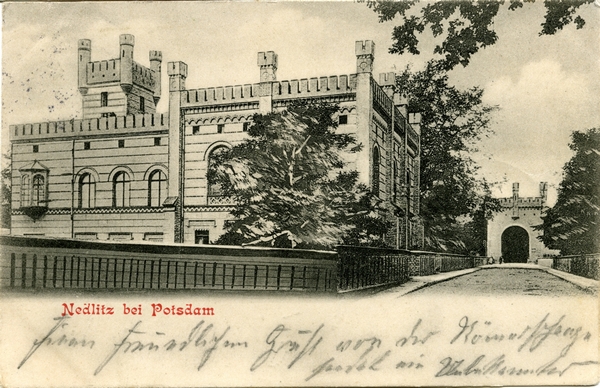 Nedlitz bei Potsdam
Einen freundlichen Gruß von der Römerschanze
sendet ein Unbekannter